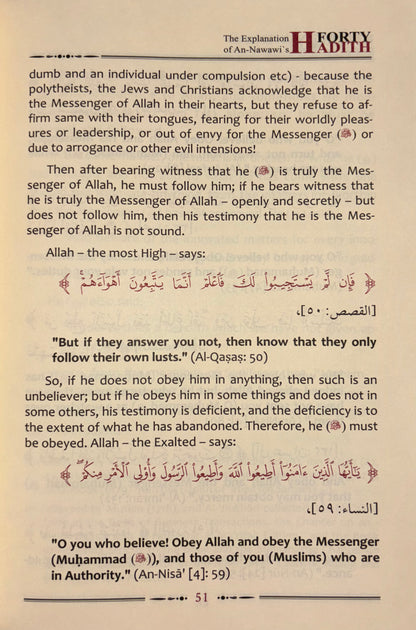 The Explanation
of An-Nawawi`s
FORTY
HADITH
dumb and an individual under compulsion etc) - because the
polytheists, the Jews and Christians acknowledge that he is
the Messenger of Allah in their hearts, but they refuse to af-
firm same with their tongues, fearing for their worldly pleas-
ures or leadership, or out of envy for the Messenger (ﷺ) or
due to arrogance or other evil intensions!
Then after bearing witness that he (ﷺ) is truly the Mes-
senger of Allah, he must follow him; if he bears witness that
he is truly the Messenger of Allah – openly and secretly – but
does not follow him, then his testimony that he is the Mes-
senger of Allah is not sound.
Allah – the most High – says:
﴿ فَإِن لَّمْ يَسْتَجِيبُوا۟ لَكَ فَٱعْلَمْ أَنَّمَا يَتَّبِعُونَ أَهْوَآءَهُمْ ﴾
[القصص: ٥٠]،
"But if they answer you not, then know that they only
follow their own lusts." (Al-Qaṣaṣ: 50)
So, if he does not obey him in anything, then such is an
unbeliever; but if he obeys him in some things and does not in
some others, his testimony is deficient, and the deficiency is to
the extent of what he has abandoned. Therefore, he (ﷺ) must
be obeyed. Allah – the Exalted – says:
﴿ يَـٰٓأَيُّهَا ٱلَّذِينَ ءَامَنُوٓا۟ أَطِيعُوا۟ ٱللَّهَ وَأَطِيعُوا۟ ٱلرَّسُولَ وَأُو۟لِى ٱلْأَمْرِ مِنكُمْ ﴾
[النساء: ٥٩]،
"O you who believe! Obey Allah and obey the Messenger
(Muḥammad (ﷺ)), and those of you (Muslims) who are
in Authority." (An-Nisā' [4]: 59)
51